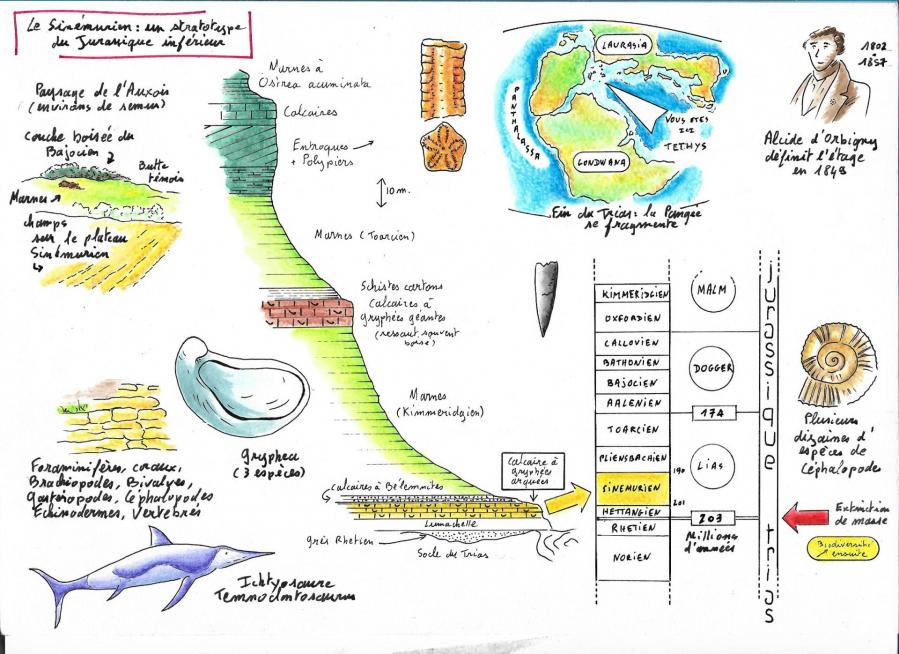 Le Sinémurien : un stratotype
du Jurassique inférieur
Paysage de l'Auxois
(environs de Semur)
couche boisée du
Bajocien
Butte
témoin
Marnes
champs
sur le plateau
Sinémurien
Marnes à
Ostrea acuminata
Calcaires
Entroques
+ Polypiers
10 m.
Marnes (Toarcien)
Schistes cartons
Calcaires à
gryphées géantes
(ressaut souvent
boisé)
Marnes
(Kimmeridgien)
Calcaire à
gryphées
arquées
Calcaires à Bélemnites
Lumachelle
Grès Rhétien
Socle du Trias
LAURASIA
PANTHALASSA
VOUS ETES
ICI
TETHYS
GONDWANA
Fin du Trias : la Pangée
se fragmente
1802
1857
Alcide d'Orbigny
définit l'étage
en 1849
gryphea
(3 espèces)
Foraminifères, coraux,
Brachiopodes, Bivalves,
Gastéropodes, Céphalopodes
Echinodermes, Vertébrés
Ichtyosaure
Temnodontosaurus
KIMMERIDGIEN
OXFORDIEN
CALLOVIEN
BATHONIEN
BAJOCIEN
AALENIEN
TOARCIEN
PLIENSBACHIEN
SINEMURIEN
HETTANGIEN
RHETIEN
NORIEN
MALM
DOGGER
174
LIAS
190
201
203
Millions
d'années
jurassique
trias
Plusieurs
dizaines d'
espèces de
Céphalopodes
Extinction
de masse
Biodiversité
↗ ensuite